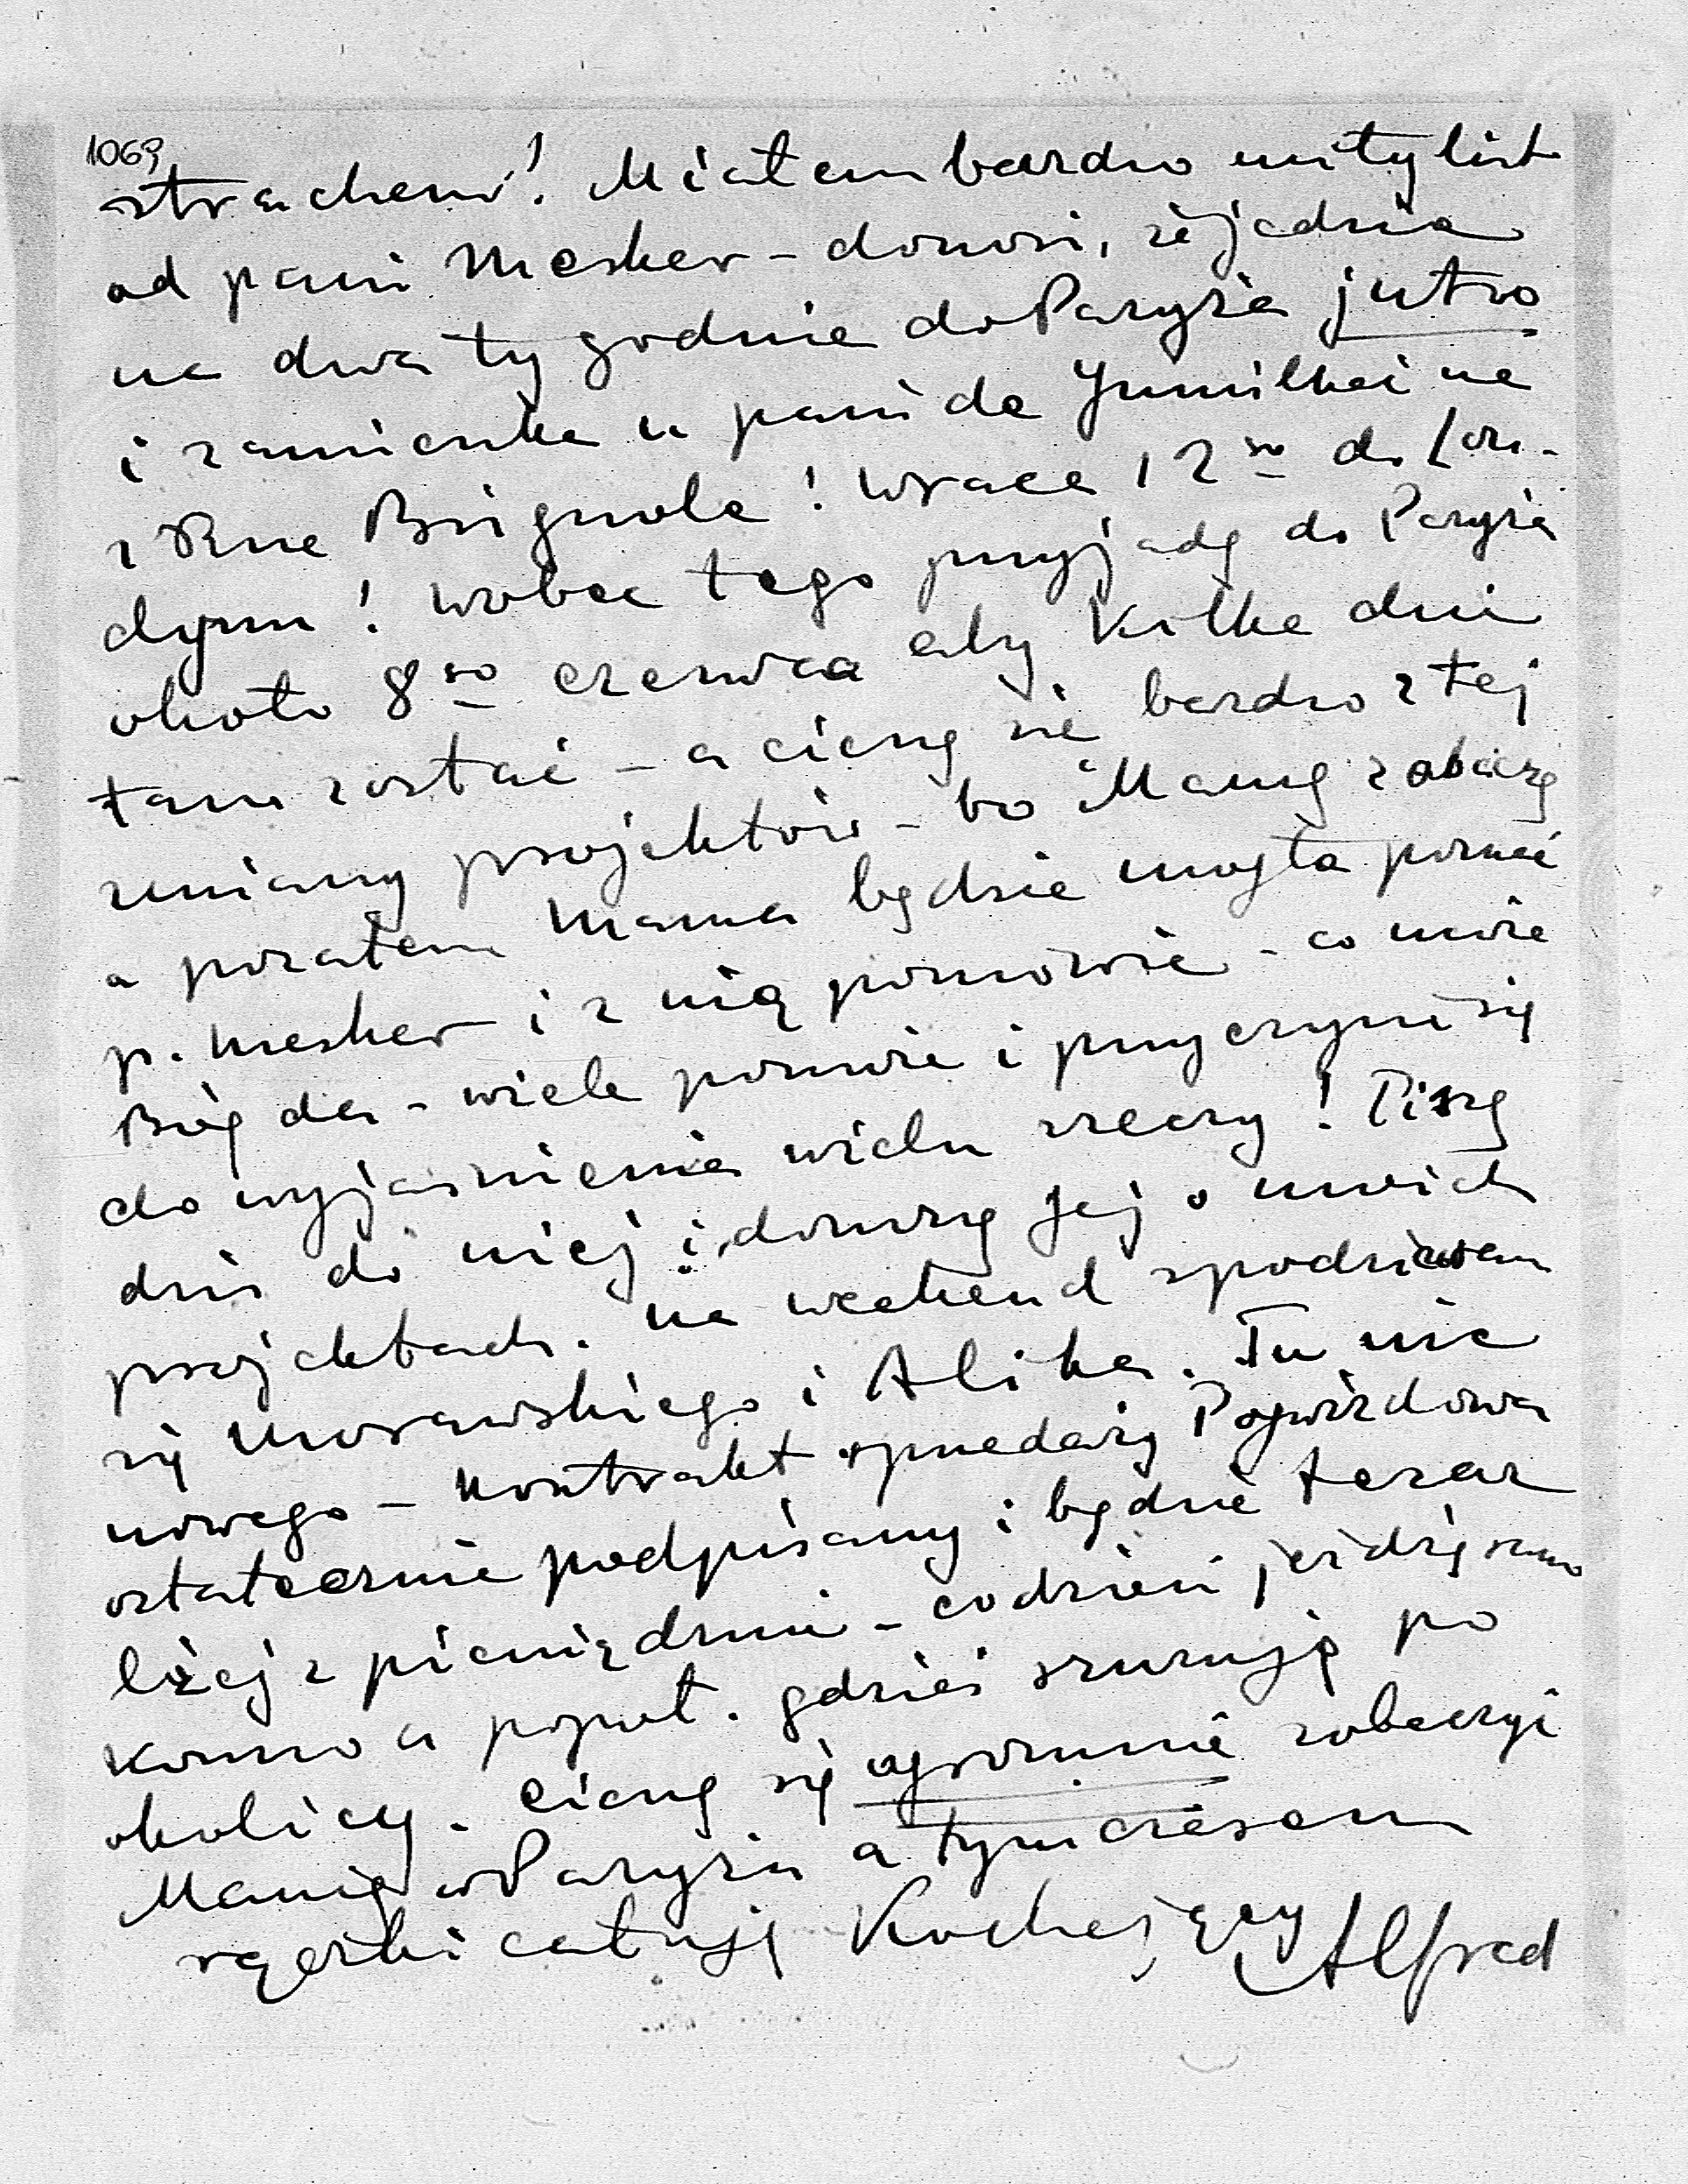 1069
strachem! Miałem bardzo miły list
od pani Mesker – donosi, że jedzie
na dwa tygodnie do Paryża jutro
i zamieszka u pani de Jumilhac na
Rue Brignole! Wraca 12go do Lon-
dynu! Wobec tego przyjadę do Paryża
około 8go czerwca aby kilka dni
tam zostać – a cieszę się bardzo z tej
zmiany projektów – bo Mamę zobaczę
a pozatem Mama będzie mogła poznać
p. Mesker i z nią pomówić – co może
Bóg da – wiele pomoże i przyczyni się
do wyjaśnienia wielu rzeczy! Piszę
dziś do niej i donoszę Jej o moich
projektach. Na weekend spodziewam
się Morawskiego i Alika. Tu nic
nowego – Kontrakt sprzedaży Pogwizdowa
ostatecznie podpisany i będzie teraz
lżej z pieniędzmi – codzień jeżdżę rano
konno a popoł. gdzieś szuruję po
okolicy. Cieszę się ogromnie zobaczyć
Mamę w Paryżu a tymczasem
rączki całuję Kochający Alfred